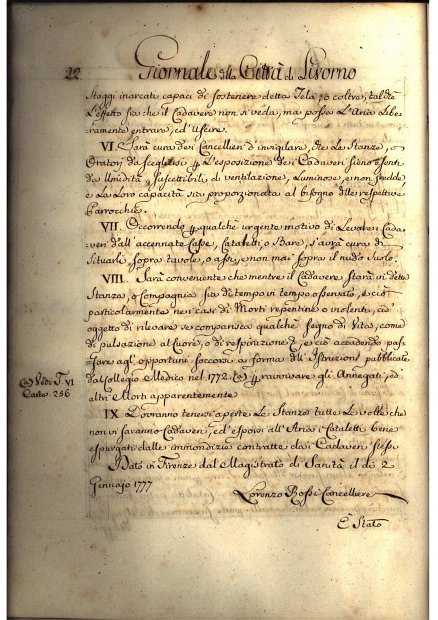 22 Giornale della Città di Livorno
Staggi inarcati capaci di sostenere detta Tela, o coltre, talche
l'effetto sia che il Cadavere non si veda, ma possa l'Aria libe=
ramente entrare, ed Uscire.
VI. Sarà cura dei Cancellieri d'invigilare, che le Stanze, o
Oratori da scegliersi p l'esposizione dei Cadaveri sieno esenti
da Umidità, suscettibili di ventilazione, Luminose, e non fredde
e la loro capacità sia proporzionata al bisogno delle respettive
Parrocchie.
VII. Occorrendo p qualche urgente motivo di Levare i Cada=
veri dall'accennate Casse, Cataletti, o Bare, s'avrà cura di
Situarli sopra tavole, o assi, e non mai sopra il nudo Suolo.
VIII. Sarà conveniente che mentre il Cadavere starà in dette
Stanze, o Compagnia sia di tempo in tempo osservato, e ciò
particolarmente nei casi di Morti repentine o violenti, ad
oggetto di rilevare se comparisca qualche segno di Vita, come
di pulsazione al Cuore, o di respirazione &, e ciò accadendo pas=
sare agl'opportuni soccorsi a forma dell'Istruzioni pubblicate
dal Collegio Medico nel 1772. (a) p ravvivare gli Annegati, ed
altri Morti apparentemente
(a) Vedi T. VI
Carte 256
IX. Dovranno tenersi aperte le Stanze tutte le volte che
non vi saranno Cadaveri, ed esporsi all'Aria i Cataletti bene
espurgati dalle immondizie contratte dai Cadaveri stessi
Dato in Firenze dal Magistrato di Sanità il dì 2
Gennajo 1777
Lorenzo Rossi Cancelliere
È Stato